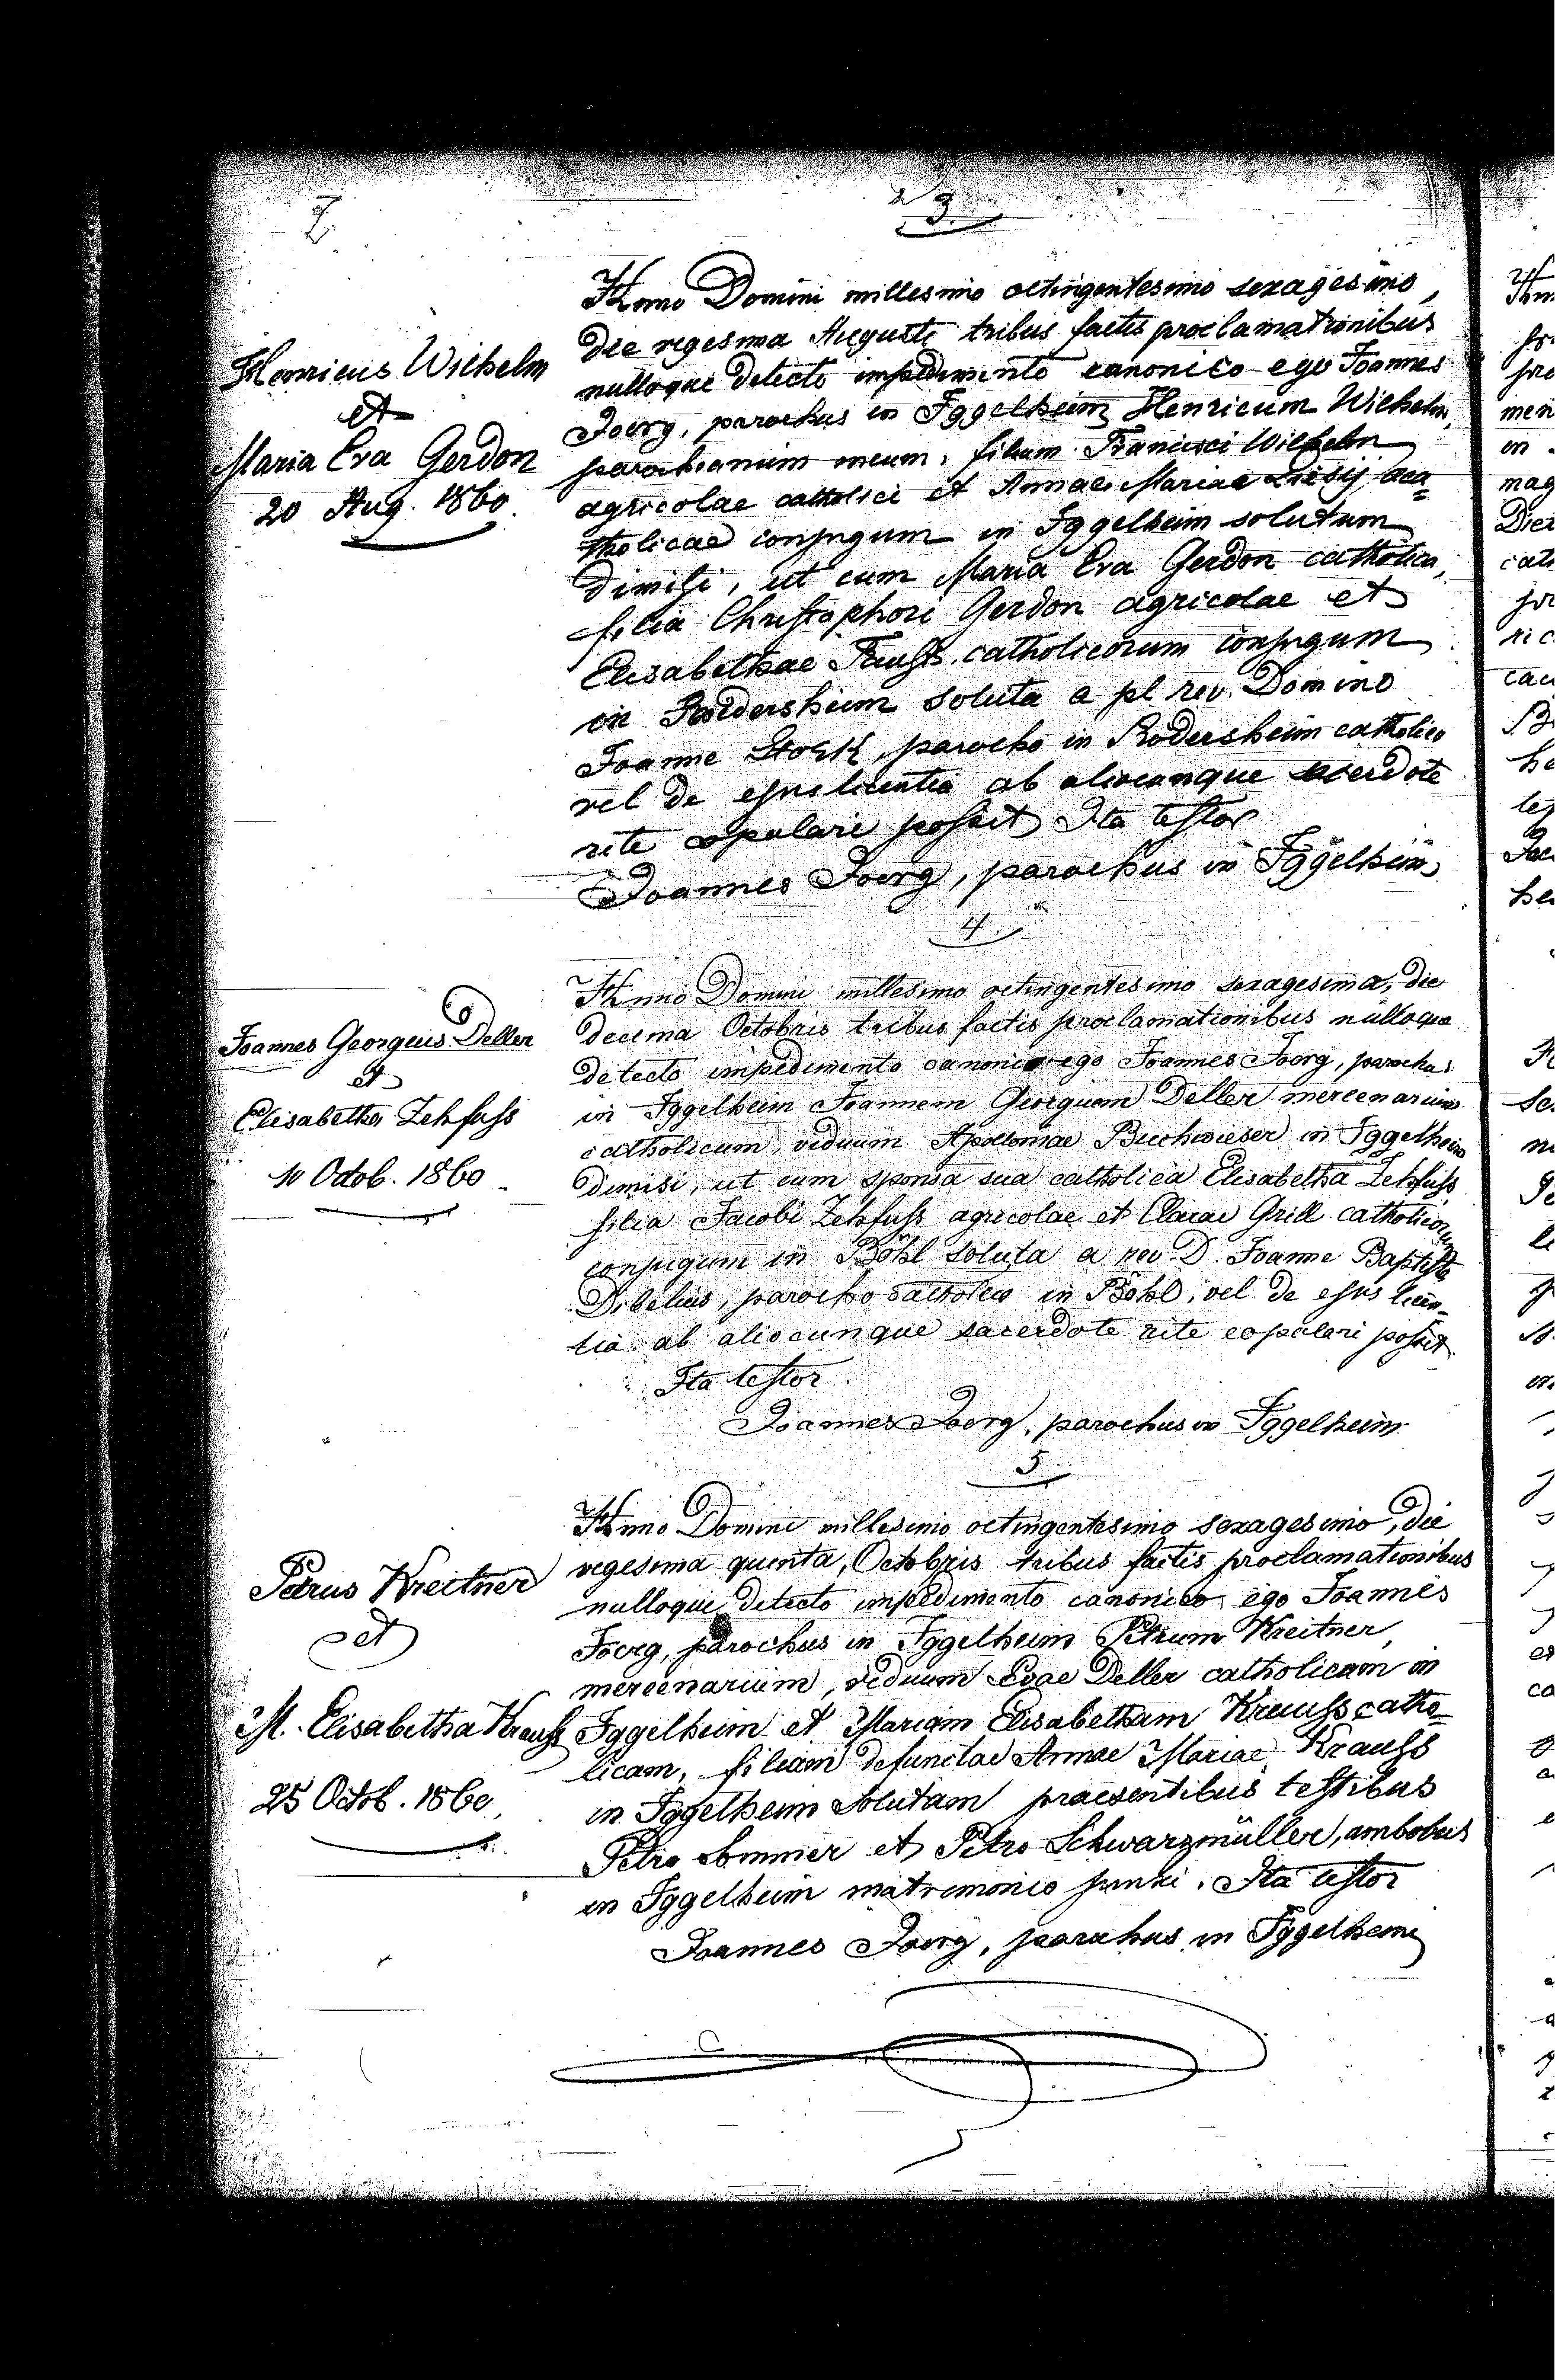 3.
Henricus Wilhelm
et
Maria Eva Gerdon
20 Aug. 1860.
Anno Domini millesimo octingentesimo sexagesimo,
die vigesima Augusti tribus factis proclamationibus
nulloque detecto impedimento canonico ego Joannes
Joerg, parochus in Iggelheim Henricum Wilhelm,
parochianum meum, filium Francisci Wilhelm
agricolae catholici et Annae Mariae aca=
tholicae conjugum in Iggelheim solutum
dimisi, ut cum Maria Eva Gerdon catholica,
filia Christophori Gerdon agricolae et
Elisabethae catholicorum conjugum
in Roedersheim soluta a pl. rev. Domino
Joanne Stork, parocho in Rödersheim catholico
vel de ejus licentia ab aliocunque sacerdote
rite copulari possit Ita testor
Joannes Joerg, parochus in Iggelheim
4.
Joannes Georgeus Deller
et
Elisabetha Zehfuss
10 Octob. 1860.
Anno Domini millesimo octingentesimo sexagesima, die
decima Octobris tribus factis proclamationibus nulloque
detecto impedimento canonico ego Joannes Joerg, parochus
in Iggelheim Joannem Georgium Deller mercenarium
catholicum, viduum Apolloniae Buchwieser in Iggelheim
dimisi, ut cum sponsa sua catholica Elisabetha Zehfuss
filia Jacobi Zehfuss agricolae et Clarae Grill catholicorum
conjugum in Böhl soluta a rev. D. Joanne Baptista
Dibelius, parocho catholico in Böhl, vel de ejus licen-
tia ab aliocunque sacerdote rite copulari possit.
Ita testor
Joannes Joerg, parochus in Iggelheim
5.
Petrus Kreitner
et
M. Elisabetha Krauss
25 Octob. 1860.
Anno Domini millesimo octingentesimo sexagesimo, die
vigesima quinta, Octobris tribus factis proclamationibus
nulloque detecto impedimento canonico ego Joannes
Joerg, parochus in Iggelheim Petrum Kreitner,
mercenarium, viduum Evae Deller catholicam in
Iggelheim et Mariam Elisabetham Krauss catho=
licam, filiam defunctae Annae Mariae Krauss
in Iggelheim solutam praesentibus testibus
Petro Sommer et Petro Schwarzmüller, ambobus
in Iggelheim matrimonio junxi. Ita testor
Joannes Joerg, parochus in Iggelheim